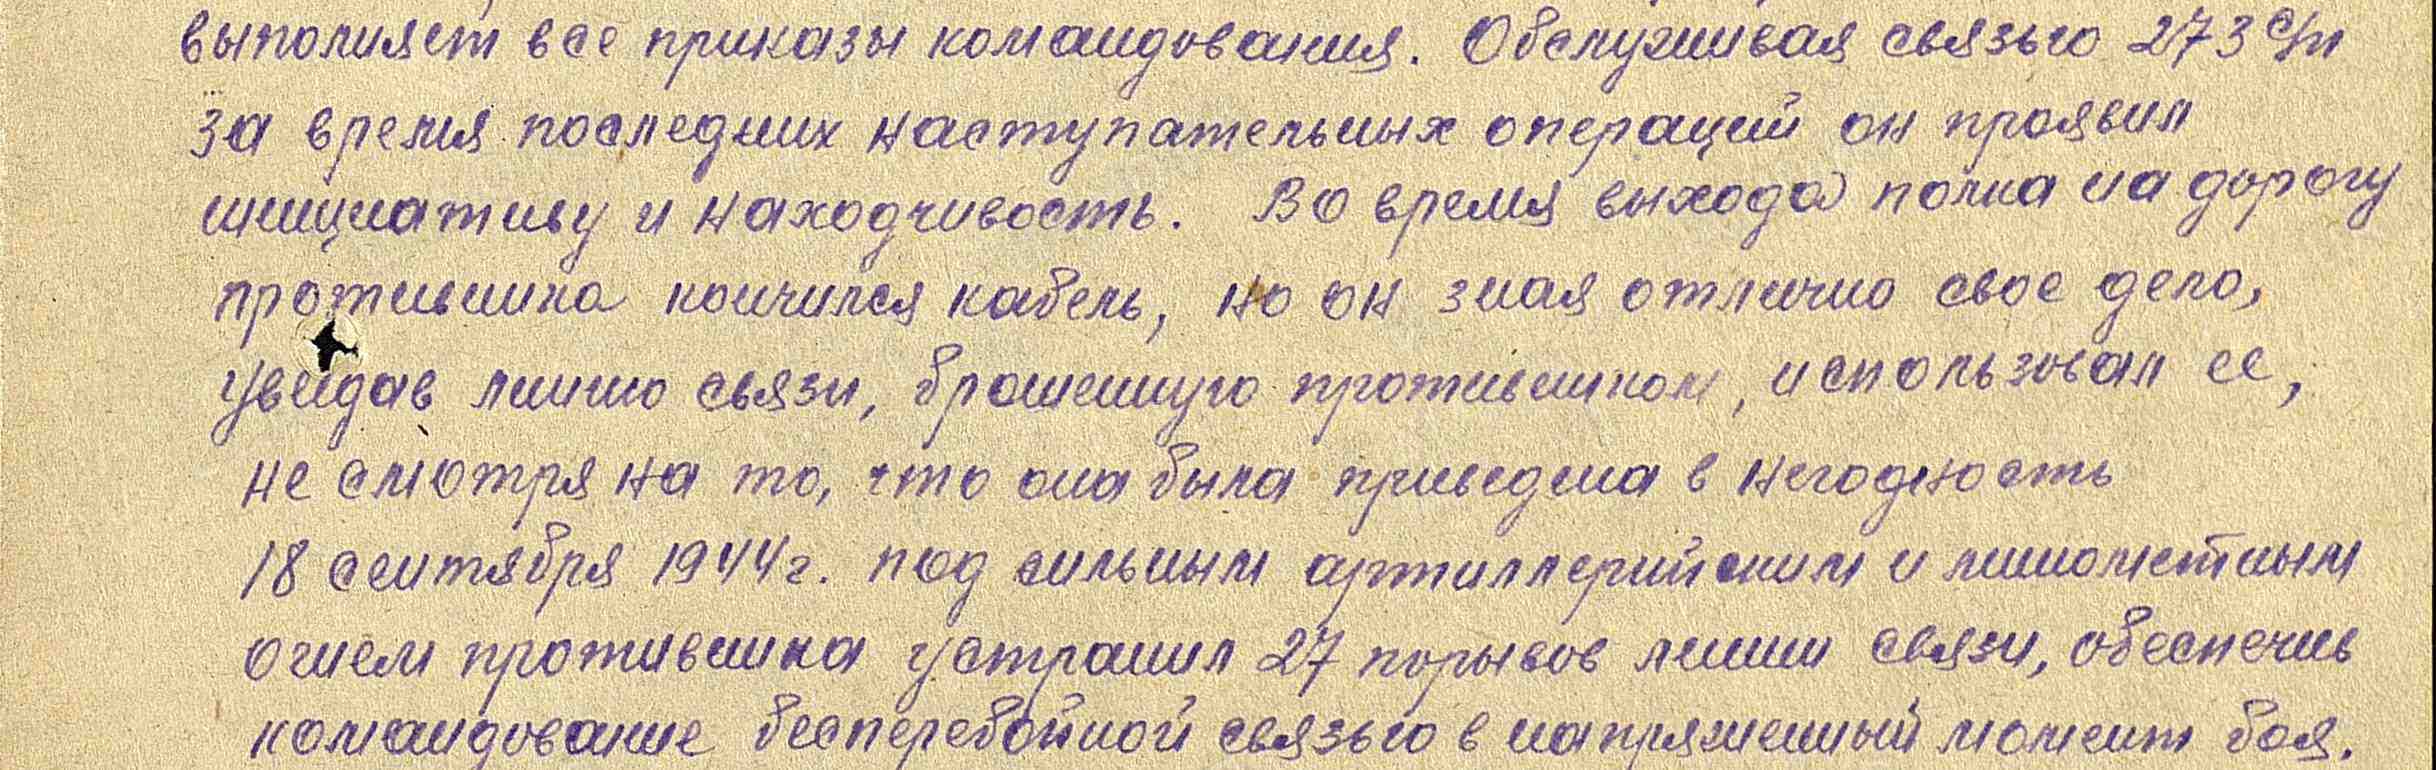 выполняет все приказы командования. Обслуживая связью 273 с/п
за время последних наступательных операций он проявил
инициативу и находчивость. Во время выхода полка на дорогу
противника кончился кабель, но он зная отлично свое дело,
увидав линию связи, брошенную противником, использовал ее,
не смотря на то, что она была приведена в негодность
18 сентября 1944г. под сильным артиллерийским и минометным
огнем противника устранил 27 порывов линии связи, обеспечив
командование бесперебойной связью в напряженный момент боя.